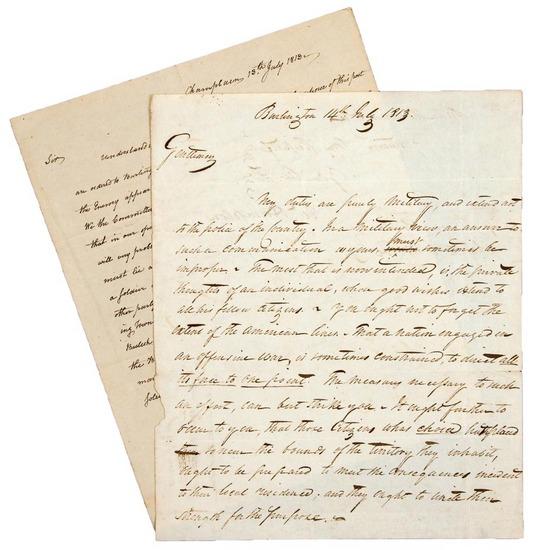 Champlain 13th July 1813
of this post
Sir Understand
are ordered to
the Enemy appear
We the Committee
that in our
will
must lie
a soldier
the
Burlington 14th July 1813.
Gentlemen
My duties are purely military and extend not
to the police of the country. In a military view an answer to
such a communication as yours, must sometimes be
improper. The most that is now intended, is the private
thoughts of an individual, whose good wishes extend to
all his fellow citizens. You ought not to forget the
extent of the American lines. That a nation engaged in
an offensive war, is sometimes constrained, to direct all
its force to one point. The measures necessary to such
an effort, can but strike you. It ought further to
occur to you, that those Citizens whose choice has placed
them so near the bounds of the territory they inhabit,
ought to be prepared to meet the consequences incident
to their local residence; and they ought to unite their
strength for the purpose.